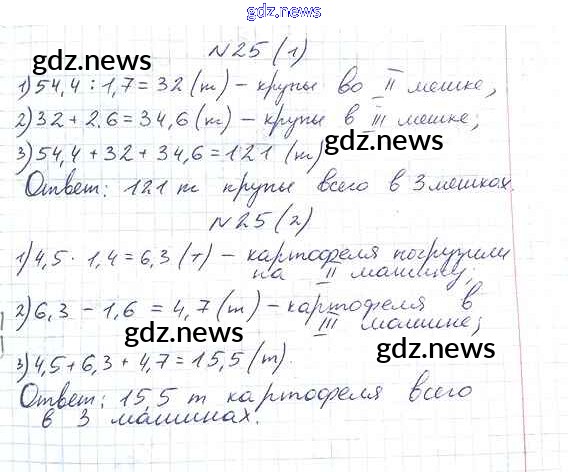 gdz.news
gdz.news
N25 (1)
1) 54,4 : 1,7 = 32 (т) - крупы во II мешке,
2) 32 + 2.6 = 34,6 (т) - крупы в III мешке;
gdz.news
3) 54,4 + 32 + 34,6 = 121 (т)
Ответ: 121 т крупы всего в 3 мешках.
gdz.news
N25 (2)
1) 4,5 · 1,4 = 6,3 (т) - картофеля погрузили
на II машину;
2) 6,3 - 1,6 = 4,7 (т) - картофеля в
III машине;
gdz.news
gdz.news
3) 4,5 + 6,3 + 4,7 = 15,5 (т).
Ответ: 15,5 т картофеля всего
в 3 машинах.